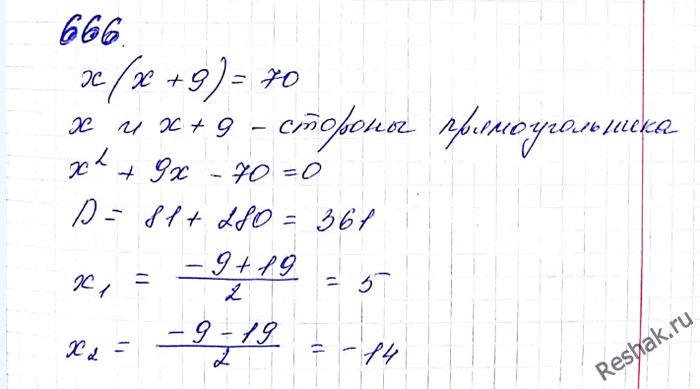 666.
x(x+9)=70
x и x+9 - стороны прямоугольника
x² + 9x - 70 = 0
D = 81 + 280 = 361
x₁ = (-9+19)/2 = 5
x₂ = (-9-19)/2 = -14
Reshak.ru